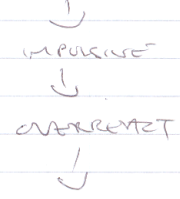 IMPULSIVE
OVERREACT